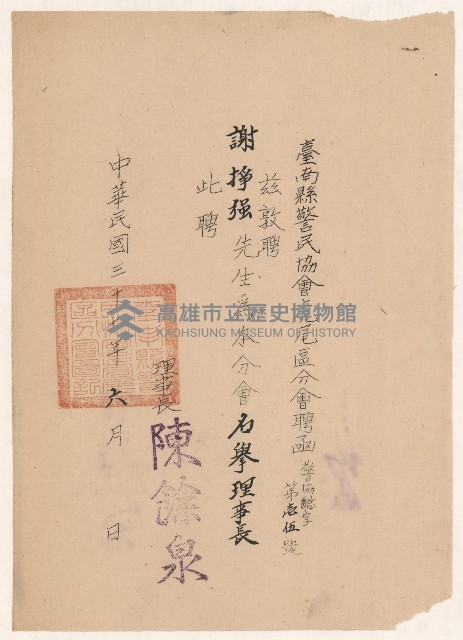 臺南縣警民協會虎尾區分會聘函 警協總字
第壱伍號
兹敦聘
謝掙强先生為本分會名譽理事長
此聘
理事長 陳餘泉
中華民國三十 年六月 日
高雄市立歷史博物館
KAOHSIUNG MUSEUM OF HISTORY